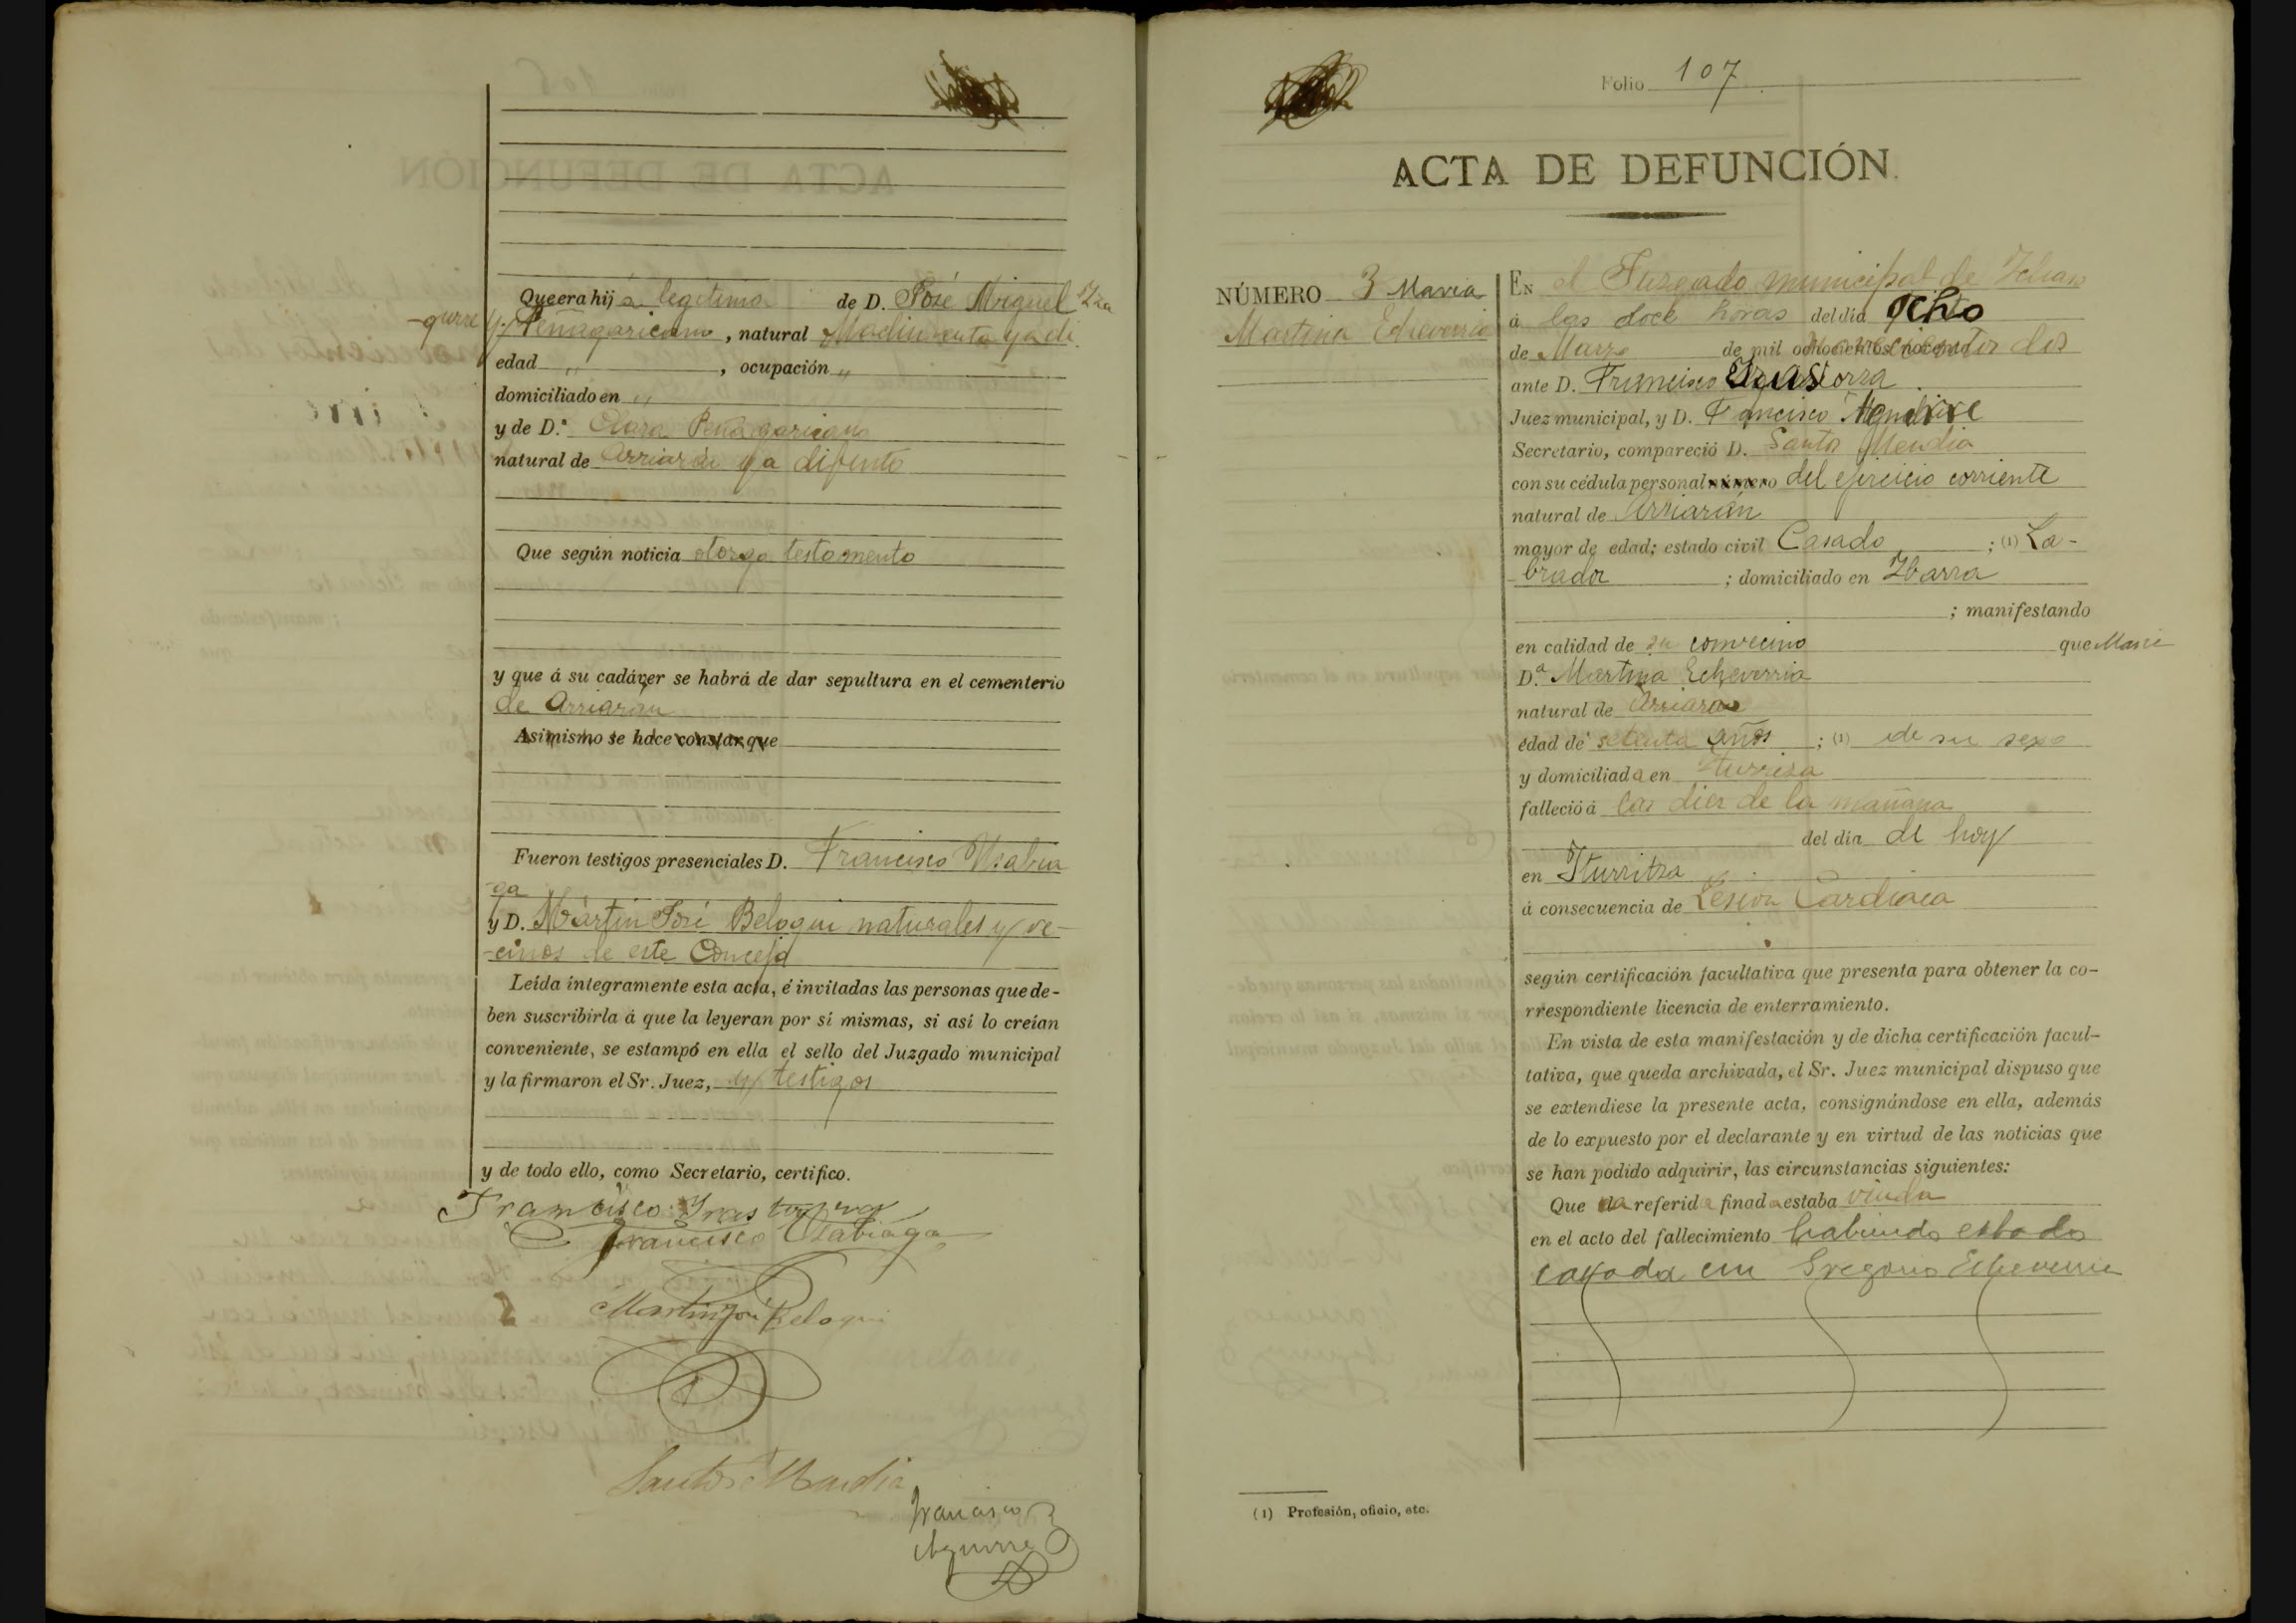 Que era hija legitima de D. José Miguel Yza
-gurre y Peñagaricano, natural Madin ya di
edad ,, , ocupación ,,
domiciliado en ,,
y de D.ª Clara Peñagaricano
natural de Arriarán ya difunto
Que según noticia otorgo testamento
y que á su cadáver se habrá de dar sepultura en el cementerio
de Arriarán
Asimismo se hace constar que
Fueron testigos presenciales D. Francisco Usabia
-ga
y D. Martin José Beloqui naturales y ve-
-cinos de este Concejo
Leída íntegramente esta acta, é invitadas las personas que de-
ben suscribirla á que la leyeran por sí mismas, si así lo creían
conveniente, se estampó en ella el sello del Juzgado municipal
y la firmaron el Sr. Juez, y testigos
y de todo ello, como Secretario, certifico.
Francisco Irastorza
Francisco Usabiaga
Martin José Beloqui
Santos Mendia
Francisco
Aguirre
Folio 107
ACTA DE DEFUNCIÓN.
NÚMERO 3 Maria
Martina Echeverria
EN el Juzgado municipal de Ichaso
á las doce horas del día ocho
de Marzo de mil novecientos dos
ante D. Francisco Irastorza
Juez municipal, y D. Francisco
Secretario, compareció D. Santos Mendia
con su cédula personal número del ejercicio corriente
natural de Arriarán
mayor de edad; estado civil Casado ; (1) La-
brador ; domiciliado en Ybarra
; manifestando
en calidad de su convecino que Maria
D.ª Martina Echeverria
natural de Arriaran
edad de setenta años ; (1) de su sexo
y domiciliada en Iturriza
falleció á las diez de la mañana
del día de hoy
en Iturritza
á consecuencia de Lesion Cardiaca
según certificación facultativa que presenta para obtener la co-
rrespondiente licencia de enterramiento.
En vista de esta manifestación y de dicha certificación facul-
tativa, que queda archivada, el Sr. Juez municipal dispuso que
se extendiese la presente acta, consignándose en ella, además
de lo expuesto por el declarante y en virtud de las noticias que
se han podido adquirir, las circunstancias siguientes:
Que la referida finada estaba viuda
en el acto del fallecimiento habiendo estado
casada con Gregorio Echeverria
(1) Profesión, oficio, etc.